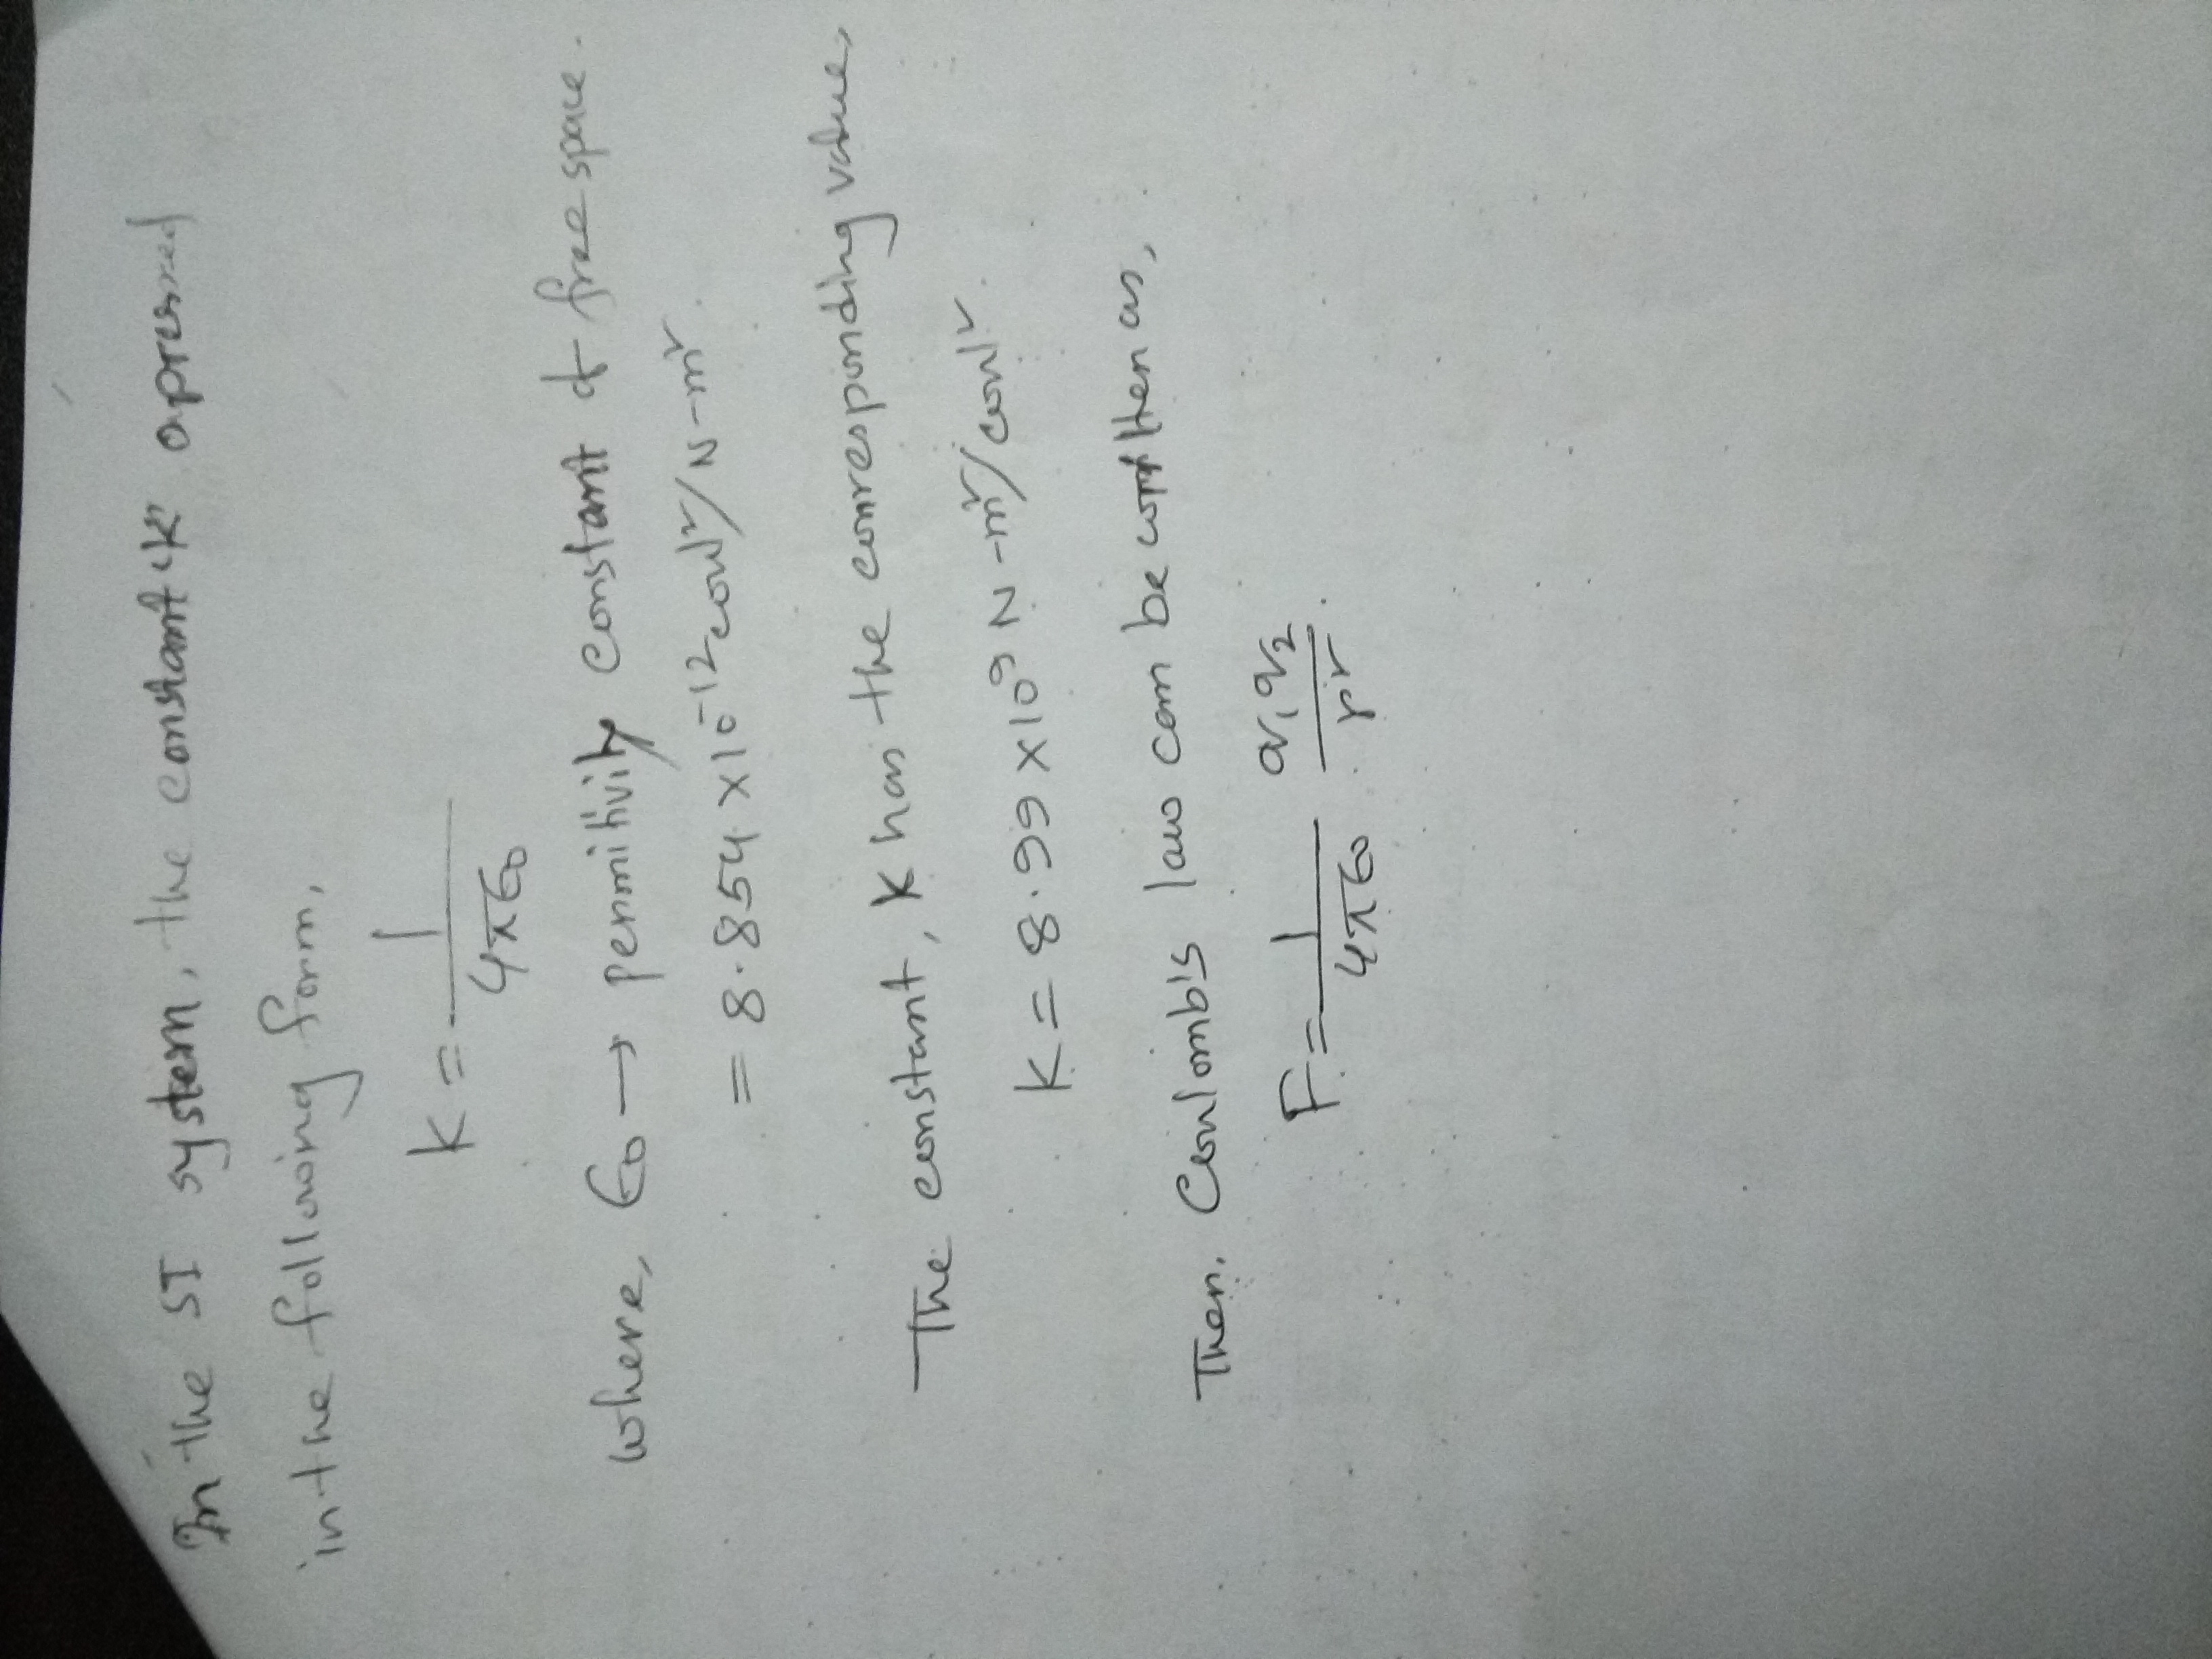 In the SI system, the constant "K" apressed
in the following form,
K = 1 / 4πϵ₀
where, ϵ₀ → permitivity constant of free space.
= 8.854 × 10⁻¹² coul²/N-m².
The constant, K has the corresponding value,
K = 8.99 × 10⁹ N-m²/coul².
Then, Coulomb's law can be written as,
F = 1 / 4πϵ₀ q₁q₂ / r².